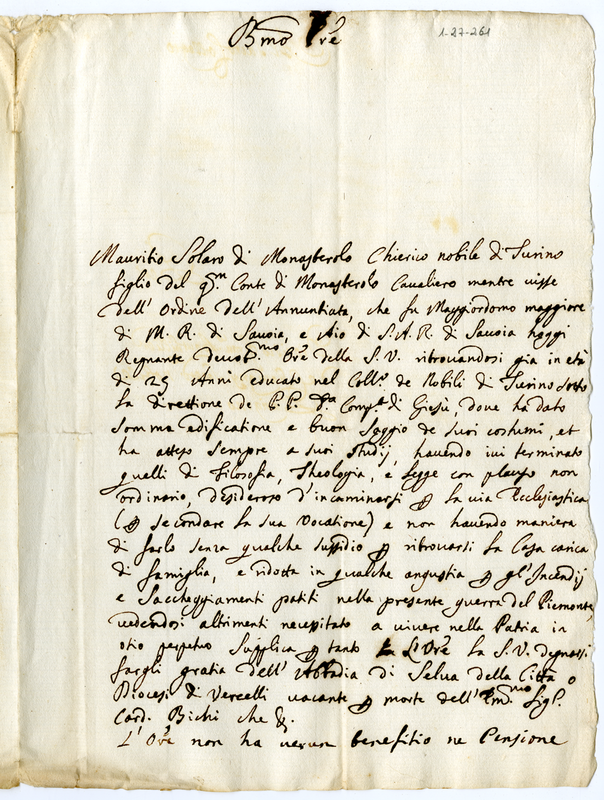 Bmo Pre
1-27-261
Mauritio Solaro di Monasterolo Chierico nobile di Turino
figlio del qm. Conte di Monasterolo Cavaliero mentre visse
dell' Ordine dell' Annuntiata, che fu Maggiordomo maggiore
di M. R. di Savoia, e Aio di S. A. R. di Savoia hoggi
Regnante devot.mo Ore della S. V. ritrovandosi già in età
di 25 Anni educato nel Coll.o de Nobili di Turino sotto
la direttione de P. P. d.a Comp.a di Giesu, dove ha dato
somma edificatione e buon saggio de suoi costumi, et
ha atteso sempre a suoi studij havendo ivi terminato
quelli di Filosofia, Theologia, e legge con plauso non
ordinario, desideroso d'incaminarsi p la via Ecclesiastica
(p secondare la sua Vocatione) e non havendo maniera
di farlo senza qualche sussidio p ritrovarsi la Casa carica
di famiglia, e ridotta in qualche angustia p gl' Incendij
e Saccheggiamenti patiti nella presente guerra del Piemonte,
vedendosi altrimenti necessitato a vivere nella Patria in
otio perpetuo Supplica p tanto L'Ore la S. V. degnarsi
fargli gratia dell' Abbadia di Selva della Città o
Diocesi di Vercelli vacante p morte dell' Em.mo Sig.
Card. Bichi che &.
L' Ore non ha verun benefitio ne Pensione